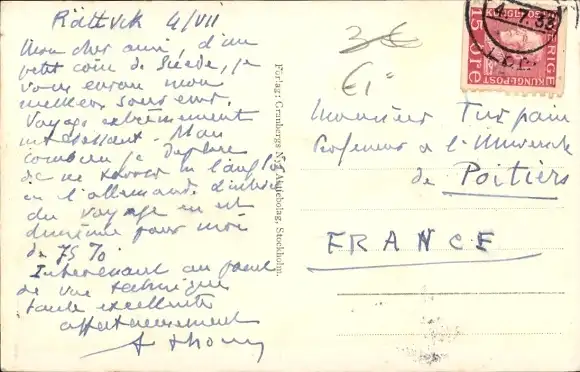 Rättvik 4/VII
Mon cher ami, d'un
petit coin de Suède, je
vous envoie mon
meilleur souvenir.
Voyage extrêmement
intéressant. Mais
combien je déplore
de ne savoir ni l'anglais
ni l'allemand. L'intérêt
du voyage en est
diminué pour moi
de 75 %.
Intéressant au point
de vue technique
santé excellente
affectueusement
Förlag: Granbergs Nya Aktiebolag, Stockholm.
3€
€1
4.7.35
SVERIGE
15 ÖRE
KUNGL. POST
Monsieur Turpain
Professeur à l'Université
de Poitiers
FRANCE